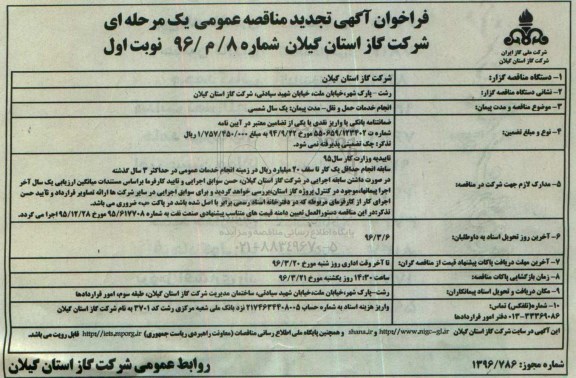 فراخوان آگهی تجدید مناقصه عمومی یک مرحله ای
شرکت گاز استان گیلان شماره ۸/ م /۹۶ نوبت اول
شرکت ملی گاز ایران
شرکت گاز استان گیلان
۱- دستگاه مناقصه گزار: شرکت گاز استان گیلان
۲- نشانی دستگاه مناقصه گزار: رشت - پارک شهر، خیابان ملت، خیابان شهید سیادتی، شرکت گاز استان گیلان
۳- موضوع مناقصه و مدت پیمان: انجام خدمات حمل و نقل- مدت پیمان: یک سال شمسی
۴- نوع و مبلغ تضمین: ضمانتنامه بانکی یا واریز نقدی یا یکی از تضامین معتبر در آیین نامه
شماره ت ۵۵۰۶۵۹/۱۲۳۴۰۲ مورخ ۹۴/۹/۲۲ به مبلغ ۱/۷۵۷/۴۵۰/۰۰۰ ریال
تذکر: چک تضمینی پذیرفته نمی شود.
۵- مدارک لازم جهت شرکت در مناقصه: تاییدیه وزارت کار سال۹۵
سابقه انجام حداقل یک کار تا سقف ۲۰ میلیارد ریال در زمینه انجام خدمات عمومی در حداکثر ۳ سال گذشته
در صورت داشتن سابقه اجرایی در شرکت گاز استان گیلان، حسن سوابق اجرایی و تایید کارفرما براساس مستندات میانگین ارزیابی یک سال آخر
اجرا پیمانها،موجود در کنترل پروژه گاز استان،بررسی خواهد گردید و برای سوابق اجرایی در سایر شرکت ها ارائه تصاویر قرارداد و تایید حسن
اجرای کار از کارفرمای مربوطه که در دفترخانه اسناد رسمی برابر با اصل شده باشد در پاکت «ب» ضروری می باشد.
تذکر:در این مناقصه دستورالعمل تعیین دامنه قیمت های متناسب پیشنهادی صنعت نفت به شماره ۹۵/۶۱۷۷۰۸ مورخ ۹۵/۱۲/۲۸ اجرا می گردد.
پایگاه اطلاع رسانی مناقصه و مزایده
۰۲۱-۸۸۳۴۹۶۷۰-۵
۶- آخرین روز تحویل اسناد به داوطلبان: ۹۶/۳/۶
۷- آخرین مهلت دریافت پاکات پیشنهاد قیمت از مناقصه گران: تا آخر وقت اداری روز شنبه مورخ ۹۶/۳/۲۰
۸- زمان بازگشایی پاکات مناقصه: ۱۴:۳۰ روز یکشنبه مورخ ۹۶/۳/۲۱
۹- مکان دریافت و تحویل اسناد پیمانکاران: رشت-پارک شهر،خیابان ملت،خیابان شهید سیادتی، ساختمان مدیریت شرکت گاز استان گیلان، طبقه سوم، امور قراردادها
۱۰- شماره(تلفکس) تماس: ۰۱۳-۳۳۳۶۹۰۸۶ دفتر امور قراردادها
واریز هزینه اسناد به شماره حساب ۲۱۷۴۶۳۴۴۰۸۰۰۵ نزد بانک ملی شعبه مرکزی رشت کد ۳۷۰۱ به نام شرکت گاز استان گیلان
این آگهی در سایت شرکت گاز استان گیلان http//www.nigc-gl.ir و shana.ir و همچنین پایگاه ملی اطلاع رسانی مناقصات (معاونت راهبردی ریاست جمهوری) http//iets.mporg.ir قابل رویت می باشد.
شماره مجوز: ۱۳۹۶/۷۸۶
روابط عمومی شرکت گاز استان گیلان